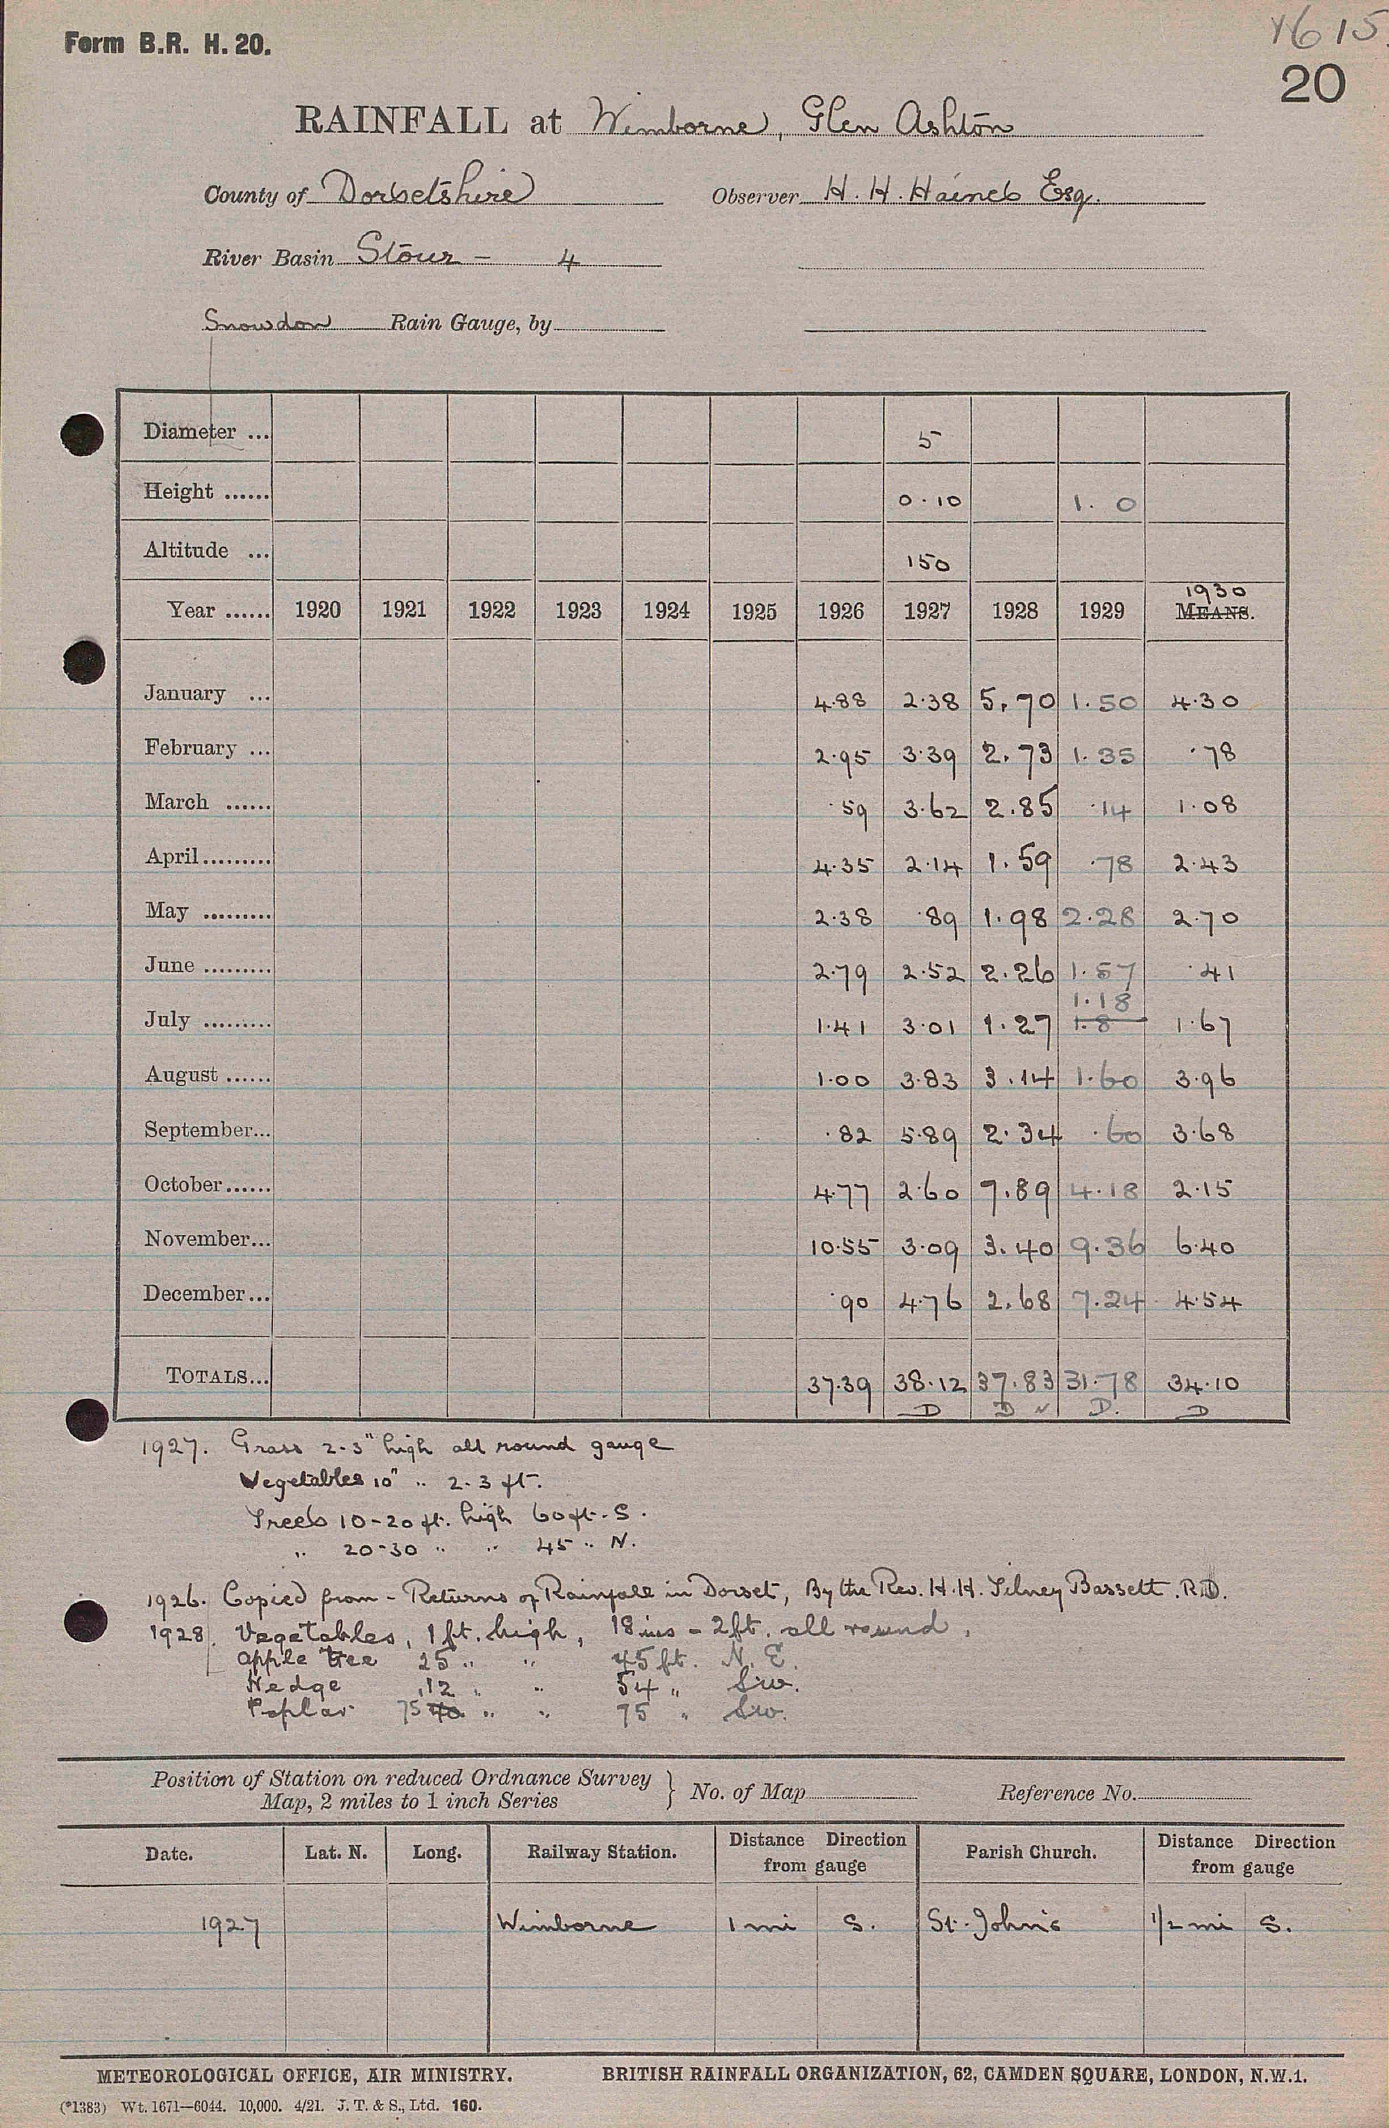 Form B.R. H. 20.
1615.
20
RAINFALL at Wimborne, Glen Ashton
County of Dorsetshire Observer H. H. Haines Esq.
River Basin Stour - 4
Snowdon Rain Gauge, by
Diameter ... 5
Height ...... 0.10 1. 0
Altitude ... 150
1930
Year ...... 1920 1921 1922 1923 1924 1925 1926 1927 1928 1929 MEANS.
January ... 4.88 2.38 5.70 1.50 4.30
February ... 2.95 3.39 2.73 1.35 .78
March ...... .59 3.62 2.85 .14 1.08
April......... 4.35 2.14 1.59 .78 2.43
May ......... 2.38 .89 1.98 2.28 2.70
June ......... 2.79 2.52 2.26 1.57 .41
1.18
July ......... 1.41 3.01 1.27 1.8 1.67
August ...... 1.00 3.83 3.14 1.60 3.96
September... .82 5.89 2.34 .60 3.68
October...... 4.77 2.60 7.89 4.18 2.15
November... 10.55 3.09 3.40 9.36 6.40
December... .90 4.76 2.68 7.24 4.54
TOTALS... 37.39 38.12 37.83 31.78 34.10
D D N D. D
1927. Grass 2-3" high all round gauge
Vegetables 10" .. 2-3 ft.
Trees 10-20 ft. high 60 ft. S.
.. 20-30 .. .. 45 .. N.
1926. Copied from - Returns of Rainfall in Dorset, By the Rev. H. H. Tilney Bassett. R.D.
1928. Vegetables, 1 ft. high, 18 ins - 2 ft. all round,
apple tree 25 .. .. 45 ft. N. E.
Hedge 12 .. .. 54 .. SW.
Poplar 75 40 .. .. 75 .. SW.
Position of Station on reduced Ordnance Survey
Map, 2 miles to 1 inch Series } No. of Map Reference No.
Date. Lat. N. Long. Railway Station. Distance Direction from gauge Parish Church. Distance Direction from gauge
1927 Wimborne 1 mi S. St. John's 1/2 mi S.
METEOROLOGICAL OFFICE, AIR MINISTRY. BRITISH RAINFALL ORGANIZATION, 62, CAMDEN SQUARE, LONDON, N.W.1.
(*1383) Wt. 1671—6044. 10,000. 4/21. J. T. & S., Ltd. 160.